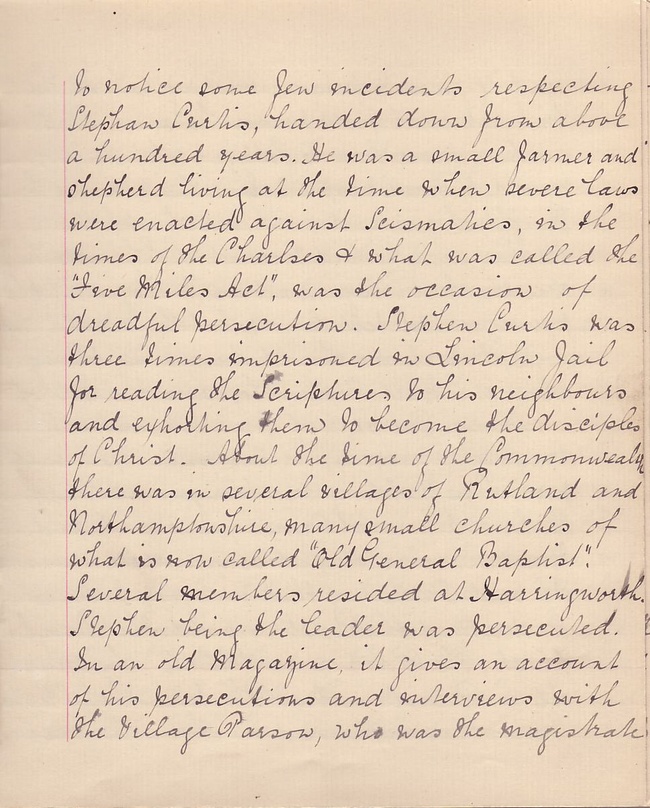 To notice some few incidents respecting
Stephan Curtis, handed down from above
a hundred years. He was a small farmer and
shepherd living at the time when severe laws
were enacted against Scismatics, in the
times of the Charlses & what was called the
"Five Miles Act", was the occasion of
dreadful persecution. Stephen Curtis was
three times imprisoned in Lincoln Jail
for reading the Scriptures to his neighbours
and exhorting them to become the disciples
of Christ. About the time of the Commonwealth
there was in several villages of Rutland and
Northamptonshire, many small churches of
what is now called "Old General Baptist".
Several members resided at Harringworth.
Stephen being the leader was persecuted.
In an old Magazine, it gives an account
of his persecutions and interviews with
the Village Parson, who was the magistrate